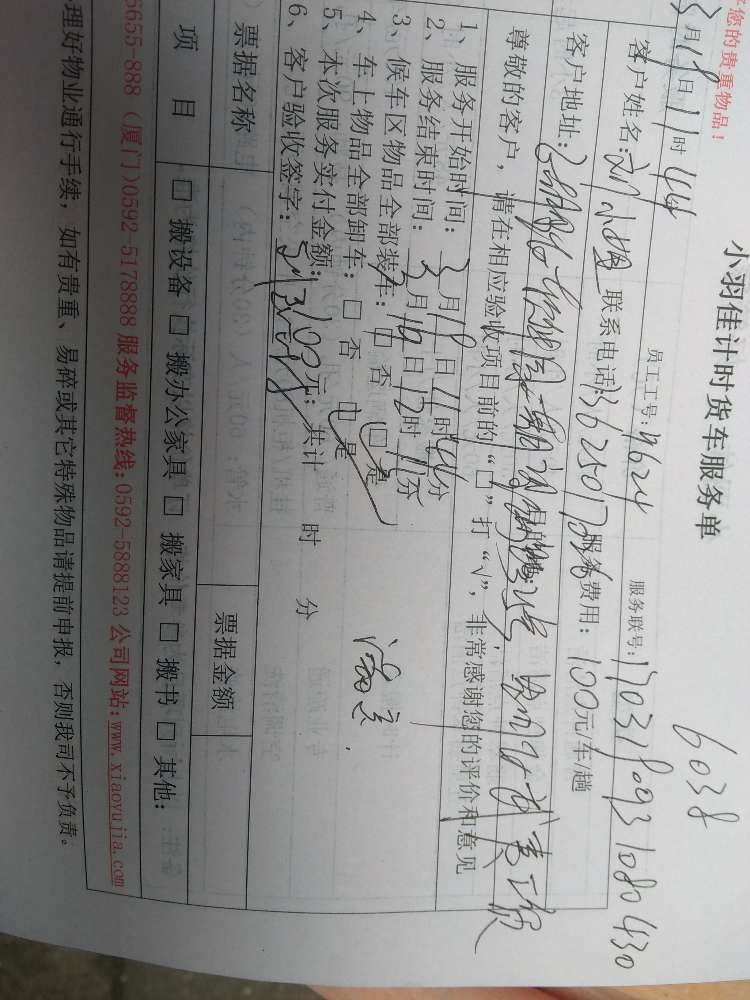 您的贵重物品！
6038
小羽佳计时货车服务单
3月19日11时44
员工工号：9624
服务联号：1703190931080430
客户姓名：刘小姐 联系电话：
客户地址：
服务费用：100元/车/趟
尊敬的客户，请在相应验收项目前的“□”打“√”，非常感谢您的评价和意见
1、服务开始时间：3月19日11时44分
2、服务结束时间：3月19日12时11分
3、候车区物品全部装车：□否 □是
4、车上物品全部卸车：□否 □是
5、本次服务实付金额：100元；共计 时 分
满意
6、客户验收签字：
票据名称 票据金额
项 目 □ 搬设备 □ 搬办公家具 □ 搬家具 □ 搬书 □ 其他：
6655-888 (厦门)0592-5178888 服务监督热线：0592-5888123 公司网站：www.xiaoyujia.com
理好物业通行手续，如有贵重、易碎或其它特殊物品请提前申报，否则我司不予负责。